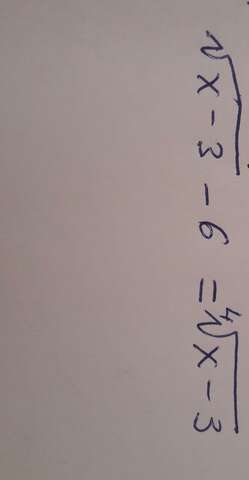 √x-3 - 6 = ⁴√x-3